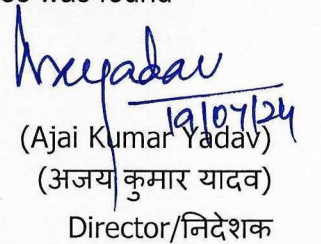 was found
19/07/24
(Ajai Kumar Yadav)
(अजय कुमार यादव)
Director/निदेशक